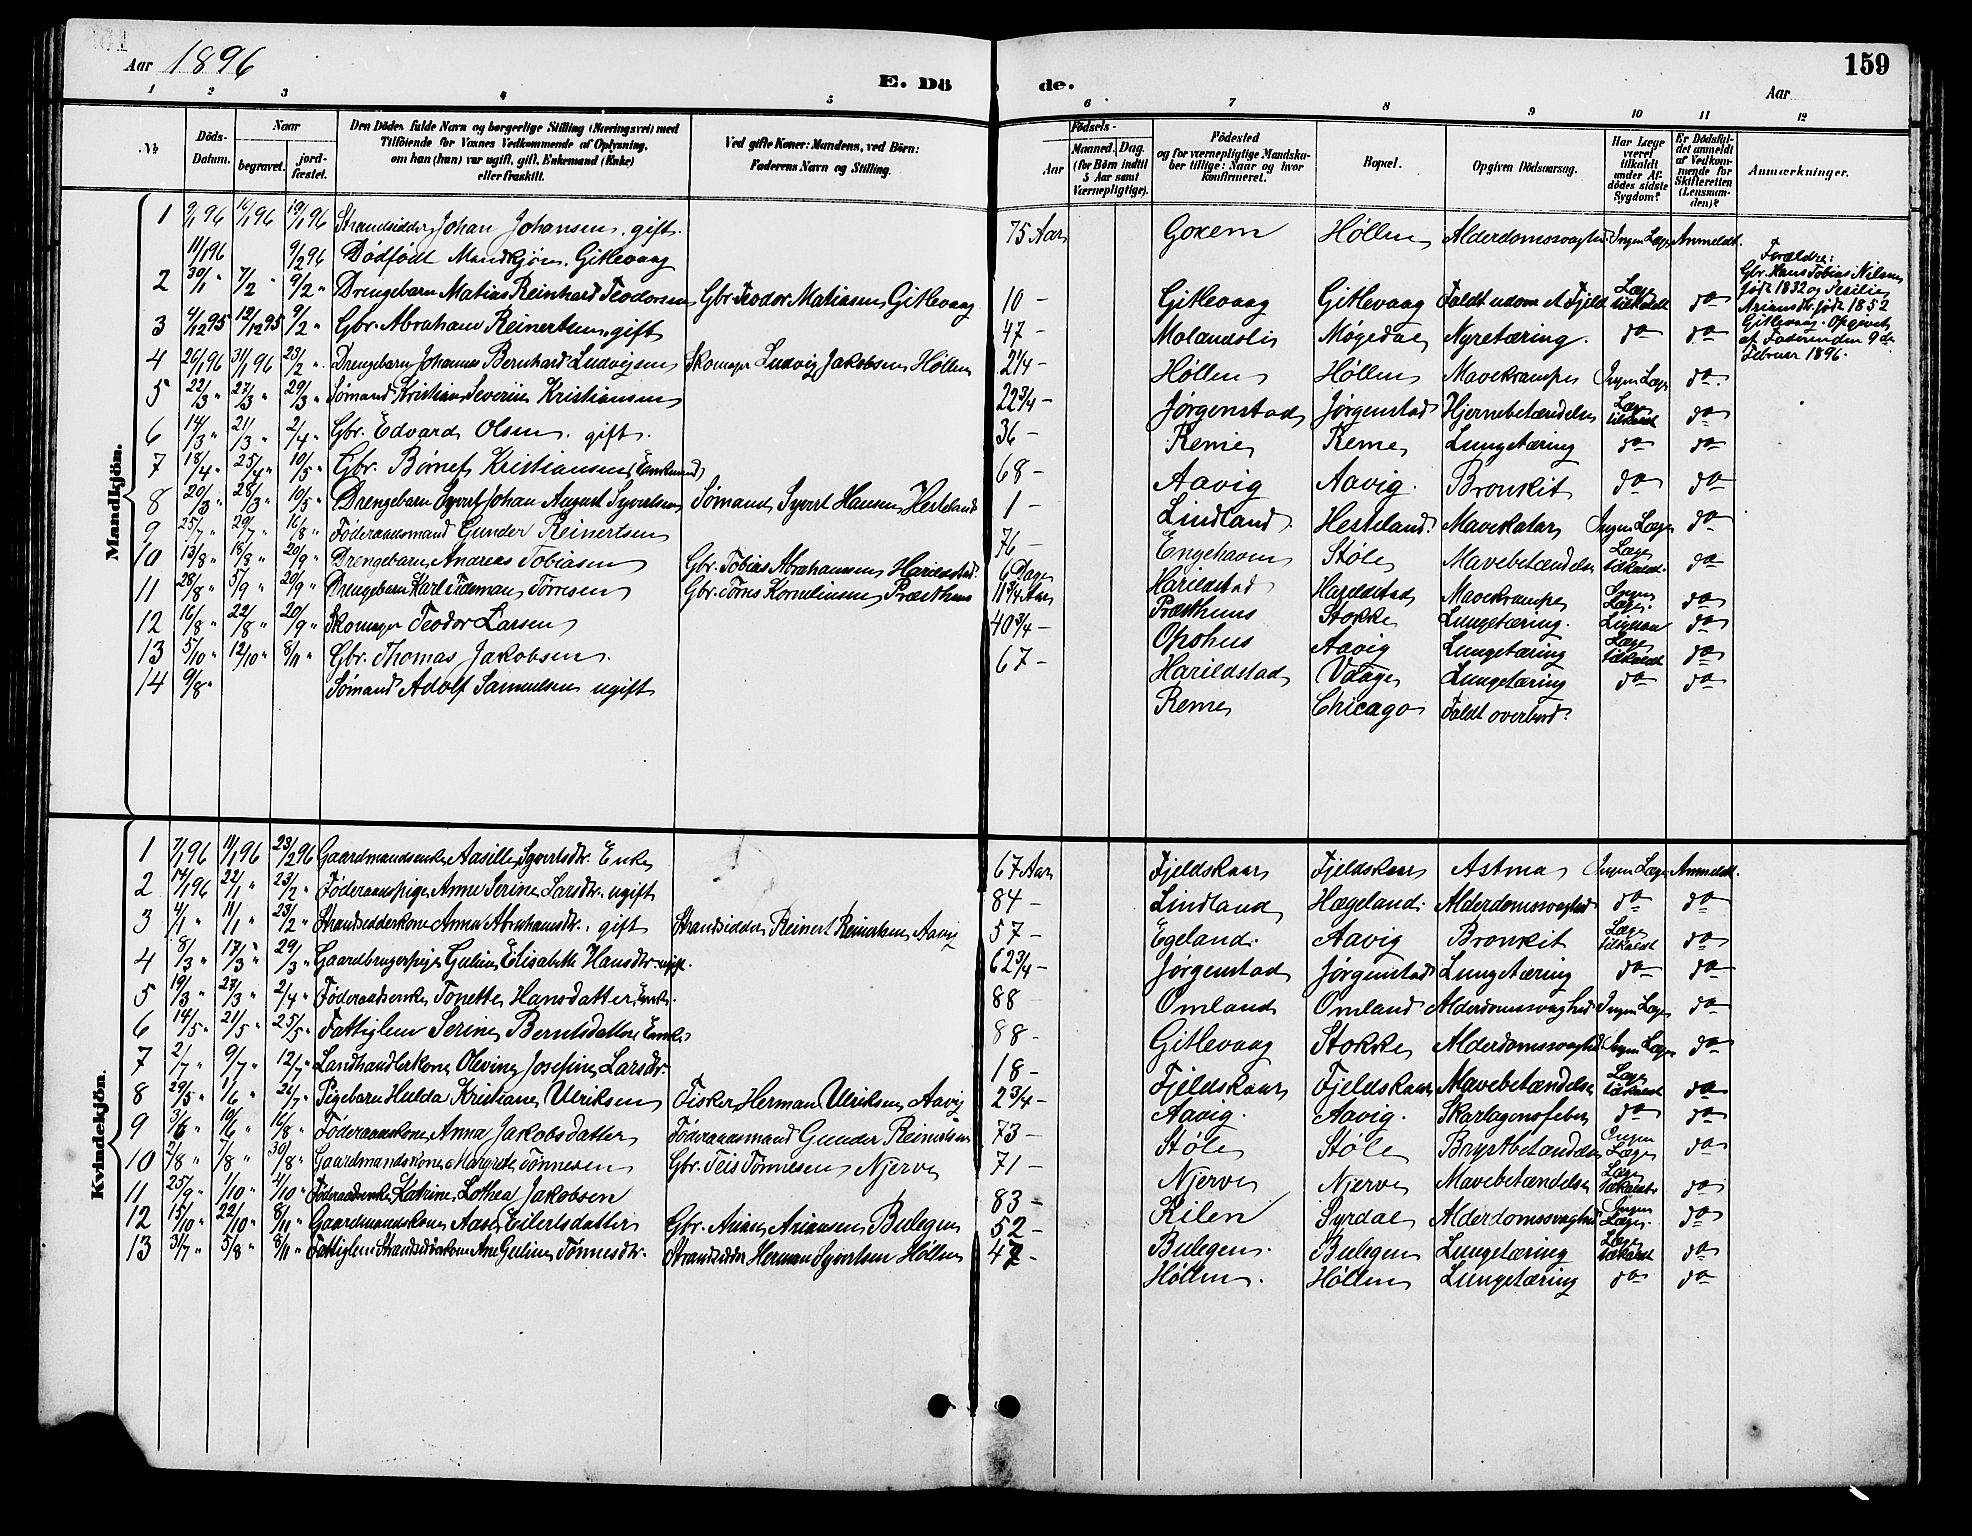 Aar 1896
E. Dö de.
159
Aar
1 2 3 4 5 6 7 8 9 10 11 12
No
Döds-Datum.
Naar
begravet.
jord-fæstet.
Den Dödes fulde Navn og borgerlige Stilling (Næringsvei) med
Tilföiende for Voxnes Vedkommende af Oplysning,
om han (hun) var ugift, gift, Enkemand (Enke)
eller fraskilt.
Ved gifte Koner: Mandens, ved Börn:
Faderens Navn og Stilling.
Födsels-
Aar
Maaned. Dag.
(for Börn indtil
5 Aar samt
Værnepligtige).
Födested
og for værnepligtige Mandska-
ber tillige: Naar og hvor
konfirmeret.
Bopæl.
Opgiven Dödsaarsag.
Har Læge
været
tilkaldt
under Af-
dödes sidste
Sygdom?
Er Dödsfal-
det anmeldt
af Vedkom-
mende for
Skifteretten
(Lensman-
den)?
Anmærkninger.
Mandkjön.
1 9/1 96 16/1 96 19/1 96 Strandsidder Johan Johansen, gift. 75 Aar Goxem Høllen Alderdomssvaghed Ingen Læge Anmeldt.
11/1 96 9/2 96 Dödfödt Mandkjön. Gitlevaag
2 30/1 " 7/2 " 9/2 " Drengebarn Matias Reinhard Teodorsen Gbr. Teodor Matiasen Gitlevaag 10 - Gitlevaag Gitlevaag Faldt udom et Fjeld Læge tilkaldt do
3 4/12 95 12/12 95 9/2 " Gbr. Abraham Reinertsen, gift 47 - Molandslis Møgedal Nyretæring. do do
4 26/1 96 31/1 96 23/2 " Drengebarn Johannes Bernhard Ludvigsen Skomager Ludvig Jakobsen Høllen 2 1/4 - Høllen Høllen Mavekrampe Ingen Læge do.
5 22/3 " 27/3 " 29/3 " Sømand Kristian Severin Kristiansen 22 3/4 - Jørgenstad Jørgenstad Hjernebetændelse Læge tilkaldt do
6 14/3 " 21/3 " 2/4 " Gbr. Edvard Olsen. gift. 36 - Reme Reme Lungetæring do do
7 18/4 " 25/4 " 10/5 " Gbr. Børnef Kristiansen (Enkemand) 68 - Aavig Aavig. Bronkit do do
8 20/3 " 28/3 " 10/5 " Drengebarn Syvert Johan August Syvertsen Sømand Syvert Hansen Hesteland 1 - Lindland Hesteland. Mavekatar Ingen Læge do
9 25/7 " 29/7 " 16/8 " Føderaadsmand Gunder Reinertsen 76 - Engehavn Støle Mavebetændelse Læge tilkaldt. do
10 13/8 " 18/8 " 20/9 " Drengebarn Andreas Tobiasen Gbr. Tobias Abrahamsen Harildstad. 6 Dage Harildstad Harildstad Mavekrampe Ingen Læge. do
11 28/8 " 5/9 " 20/9 " Drengebarn Karl Tideman Tørresen Gbr. Tørres Korneliusen Præsthus 11 3/4 Aar Præsthuus Stokke Lungetæring. do
12 16/8 " 22/8 " 20/9 " Skomager Teodor Larsen 40 3/4 - Opohus Aavig Lungetæring Læge tilkaldt do
13 5/10 " 12/10 " 8/11 " Gbr. Thomas Jakobsen. 67 - Harildstad Vaage Lungetæring do do
14 9/8 " Sømand Adolf Samuelsen ugift Reme Chicago Faldt overbord.
Forældre:
Gbr. Hans Tobias Nilsen
født 1832 og Serilie
Ariansdtr. født 1852
Gitlevaag. Opgivet
af Faderen den 9de
Februar 1896.
Kvindekjön.
1 7/1 96 14/1 96 23/2 96 Gaardmandsenke Aasille Syvertsdtr. Enke 67 Aar Fjeldskaar Fjeldskaar Astma Ingen Læge Anmeldt.
2 14/1 96 22/1 " 23/2 " Føderaadspige Anne Serine Larsdtr. ugift 84 - Lindland Hægeland. Alderdomssvaghed do do
3 4/1 " 11/1 " 23/2 " Strandsidderkone Anna Abrahamsdtr. gift Strandsidder Reinert Reinertsen Aavig 57 - Egeland. Aavig Bronkit Læge tilkaldt do
4 8/3 " 17/3 " 29/3 " Gaardbrugerpige Guline Elisabeth Hansdtr. ugift. 62 3/4 - Jørgenstad Jørgenstad Lungetæring do do
5 19/3 " 27/3 " 2/4 " Føderaadsenke Tonette Hansdatter, Enke. 88 - Omland Omland Alderdomssvaghed Ingen Læge do
6 14/5 " 21/5 " 25/5 " Fattiglem Serine Berntsdatter Enke 88 - Gitlevaag Stokke Alderdomssvaghed Ingen Læge do
7 2/7 " 9/7 " 12/7 " Landhandlerkone Olevine Josefine Larsdtr. 18 - Fjeldskaar Fjeldskaar Mavebetændelse Læge tilkaldt do
8 29/5 " 1/6 " 26/7 " Pigebarn Hulda Kristiane Ulriksen Fisker Herman Ulriksen Aavig 2 3/4 - Aavig. Aavig. Skarlagensfeber do do
9 3/6 " 10/6 " 16/8 " Føderaadskone Anna Jakobsdatter Føderaadsmand Gunder Reinertsen 73 - Støle Støle Brystbetændelse Ingen Læge do
10 2/8 " 7/8 " 30/8 " Gaardmandskone Margrete Tønnesen Gbr. Teis Tønnesen Njerve 71 - Njerve Njerve Mavebetændelse Læge tilkaldt do
11 25/9 " 1/10 " 4/10 " Føderaadsenke Katrine Lothea Jakobsen 83 - Kilen Syrdal Alderdomssvaghed Ingen Læge. do
12 15/10 " 22/10 " 8/11 " Gaardmandskone Aase Eilertsdatter Gbr. Arian Ariansen Bulegen 52 - Bulegen. Bulegen Lungetæring Læge tilkaldt do
13 31/7 " 5/8 " 8/11 " Fattiglem Strandsidderkone Ane Guline Tønnesdtr. Strandsidder Herman Syvertsen Høllen 47 - Høllen. Høllen Lungetæring do do